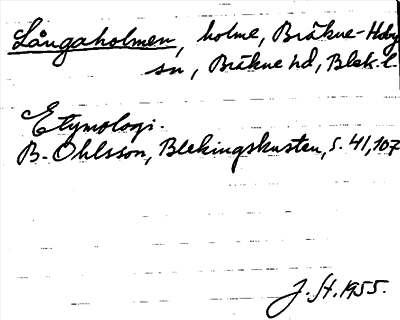 Långaholmen, holme, Bräkne-Hoby
sn, Bräkne hd, Blek. l.
Etymologi.
B. Ohlsson, Blekingskusten, s. 41, 107
J. St. 1955.